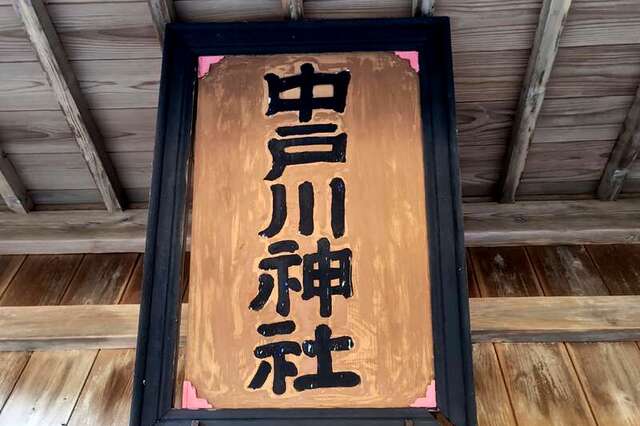 中戸川神社